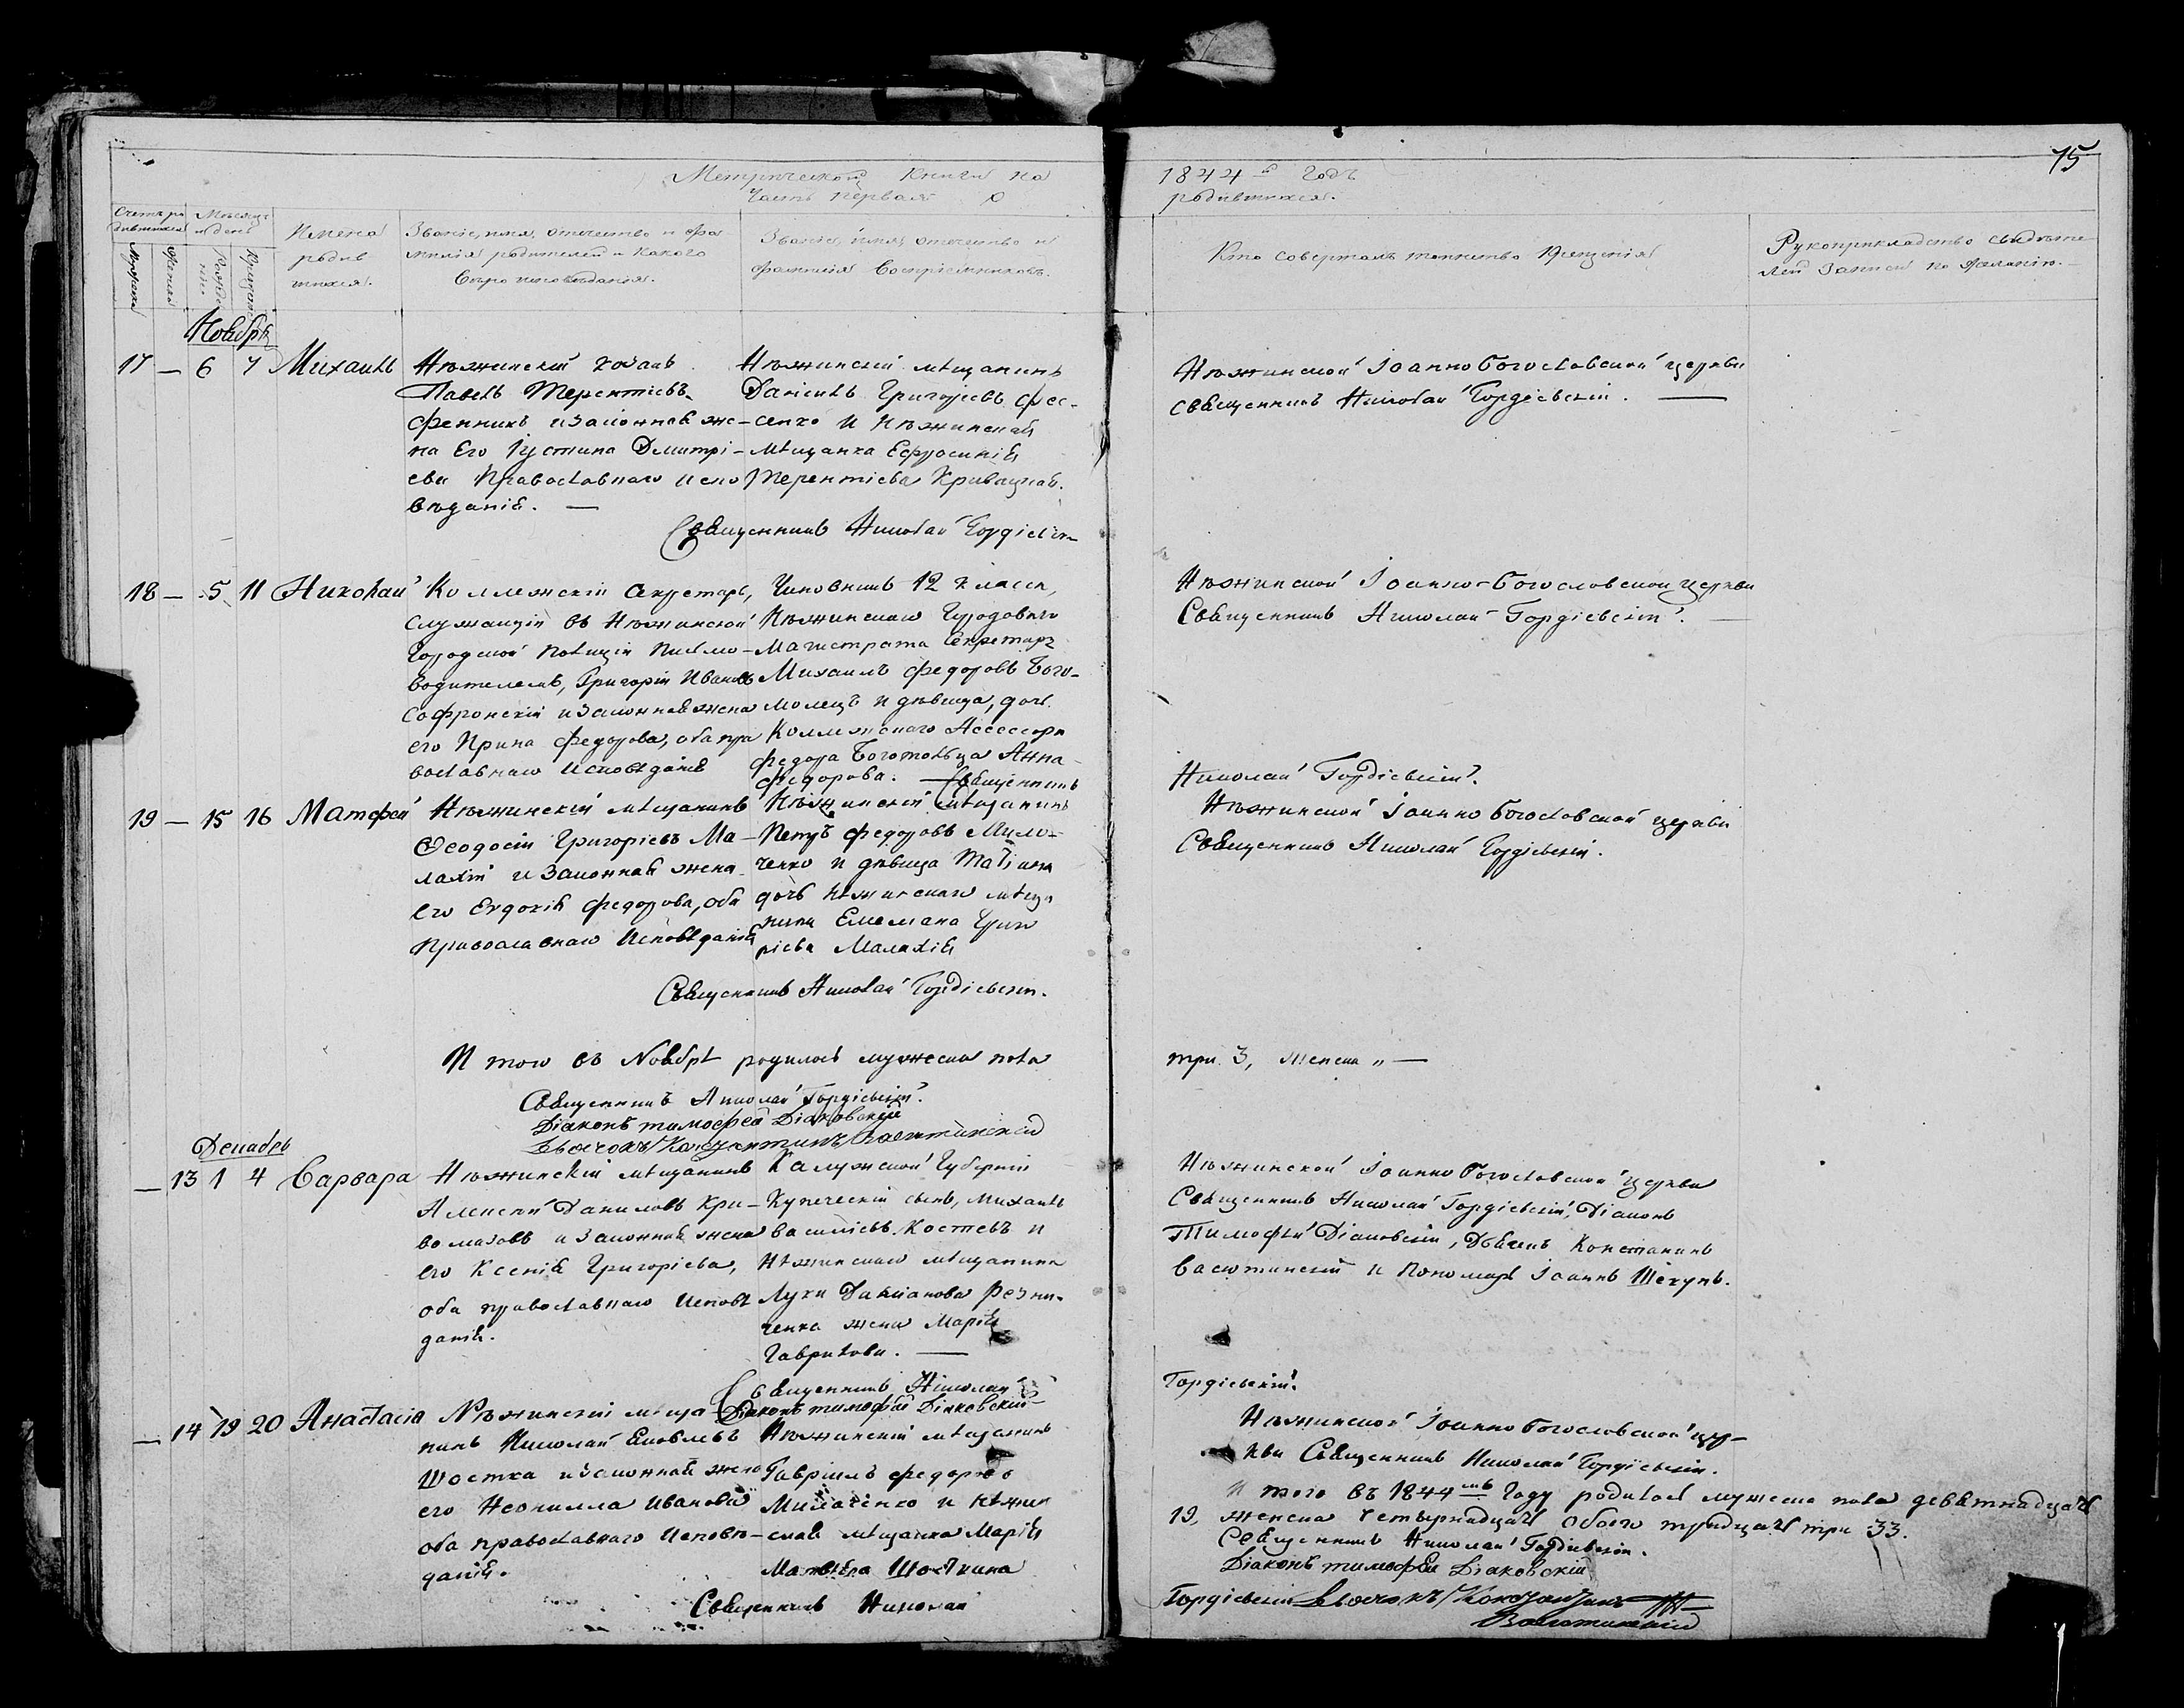 75
Метрической Книги на 1844й годъ
Часть первая о родившихся.
Счетъ родившихся
Мужеска
Женска
Мѣсяцъ и день
Рожденія
Крещенія
Имена родившихся.
Званіе, имя, отечество и фамилія родителей и какого вѣроисповѣданія.
Званіе, имя, отечество и фамилія воспріемниковъ.
Кто совершалъ таинство крещенія
Рукоприкладство свидѣтелей записи по желанію.
Ноябрь
17 — 6 7 Михаилъ
Нѣжинскій козакъ
Павелъ Терентіевъ
и законная же-
на Его Іустина Дмитрі-
ева Православнаго испо
вѣданія. —
Нѣжинскій мѣщанинъ
Даніилъ Григоріевъ Фес-
сенко и Нѣжинская
мѣщанка Ефросинія
Терентіева
Священникъ Николай Гордіевскій
Нѣжинской Іоанно Богословской церкви
священникъ Николай Гордіевскій. —
18 — 5 11 Николай
Коллежскій Секретарь,
служащій въ Нѣжинской
Городской Полиціи Письмо-
водителемъ, Григорій Ивановъ
Софронскій и законная жена
его Ирина Федорова, оба пра
вославнаго исповѣданія
Чиновникъ 12 класса,
Нѣжинскаго Городоваго
Магистрата Секретарь
Михаилъ Федоровъ Бого-
молецъ и дѣвица, дочь
Коллежскаго Ассессора
Федора Богомольца Анна
Федорова. — Священникъ
Нѣжинской Іоанно-Богословской церкви
Священникъ Николай Гордіевскій. —
Николай Гордіевскій.
19 — 15 16 Матфей
Нѣжинскій мѣщанинъ
Феодосій Григоріевъ Ма-
лахій и законная жена
его Евдокія Федорова, оба
Православнаго Исповѣданія
Нѣжинскій мѣщанинъ
Петръ Федоровъ Мило-
ченко и дѣвица Татіана
дочь Нѣжинскаго мѣща
нина Емельяна Григо
ріева Малахія
Священникъ Николай Гордіевскій.
Нѣжинской Іоанно Богословской церкви
Священникъ Николай Гордіевскій.
Итого въ Ноябрѣ родилось мужеска пола три 3, женска „ —
Священникъ Николай Гордіевскій.
Діаконъ Тимофей Діаковскій
Дьячокъ Константинъ Васютинскій
Декабрь
— 13 1 4 Варвара
Нѣжинскій мѣщанинъ
Алексѣй Даниловъ Кри-
и законная жена
его Ксенія Григоріева,
оба православнаго исповѣ
данія.
Калужской Губерніи
Купеческій сынъ, Михаилъ
Василіевъ Костевъ и
Нѣжинскаго мѣщанина
Луки Даміанова Резни-
ченка жена Марія
Гаврилова. —
Священникъ Николай
Діаконъ Тимофей Діаковскій
Нѣжинской Іоанно Богословской церкви
Священникъ Николай Гордіевскій, Діаконъ
Тимофѣй Діаковскій, Дьячекъ Константинъ
Васютинскій и Пономарь Іоаннъ Шекунъ.
Гордіевскій.
— 14 19 20 Анастасія
Нѣжинскій мѣща
нинъ Николай Яковлевъ
Шостка и законная жена
его Неонилла Иванова
оба православнаго исповѣ-
данія.
Нѣжинскій мѣщанинъ
Гавріилъ Федоровъ
Милаченко и нѣжин
ская мѣщанка Марія
Матвѣева Шосткина
Священникъ Николай
Нѣжинской Іоанно Богословской цер-
кви Священникъ Николай Гордіевскій.
Итого въ 1844мъ Году родилось мужеска пола девятнадцать
19, женска четырнадцать обоего тридцать три 33.
Священникъ Николай Гордіевскій.
Діаконъ Тимофей Діаковскій
Гордіевскій Дьячокъ Константинъ
Васютинскій